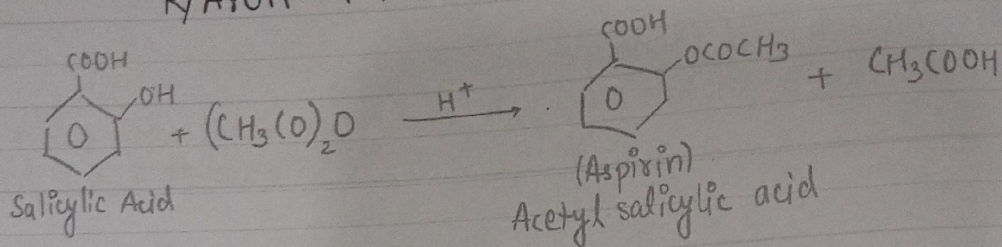 COOH
OH
+ (CH3(O)2O
H+
COOH
OCOCH3
+ CH3COOH
O
O
Salicylic Acid
(Aspirin)
Acetyl salicylic acid